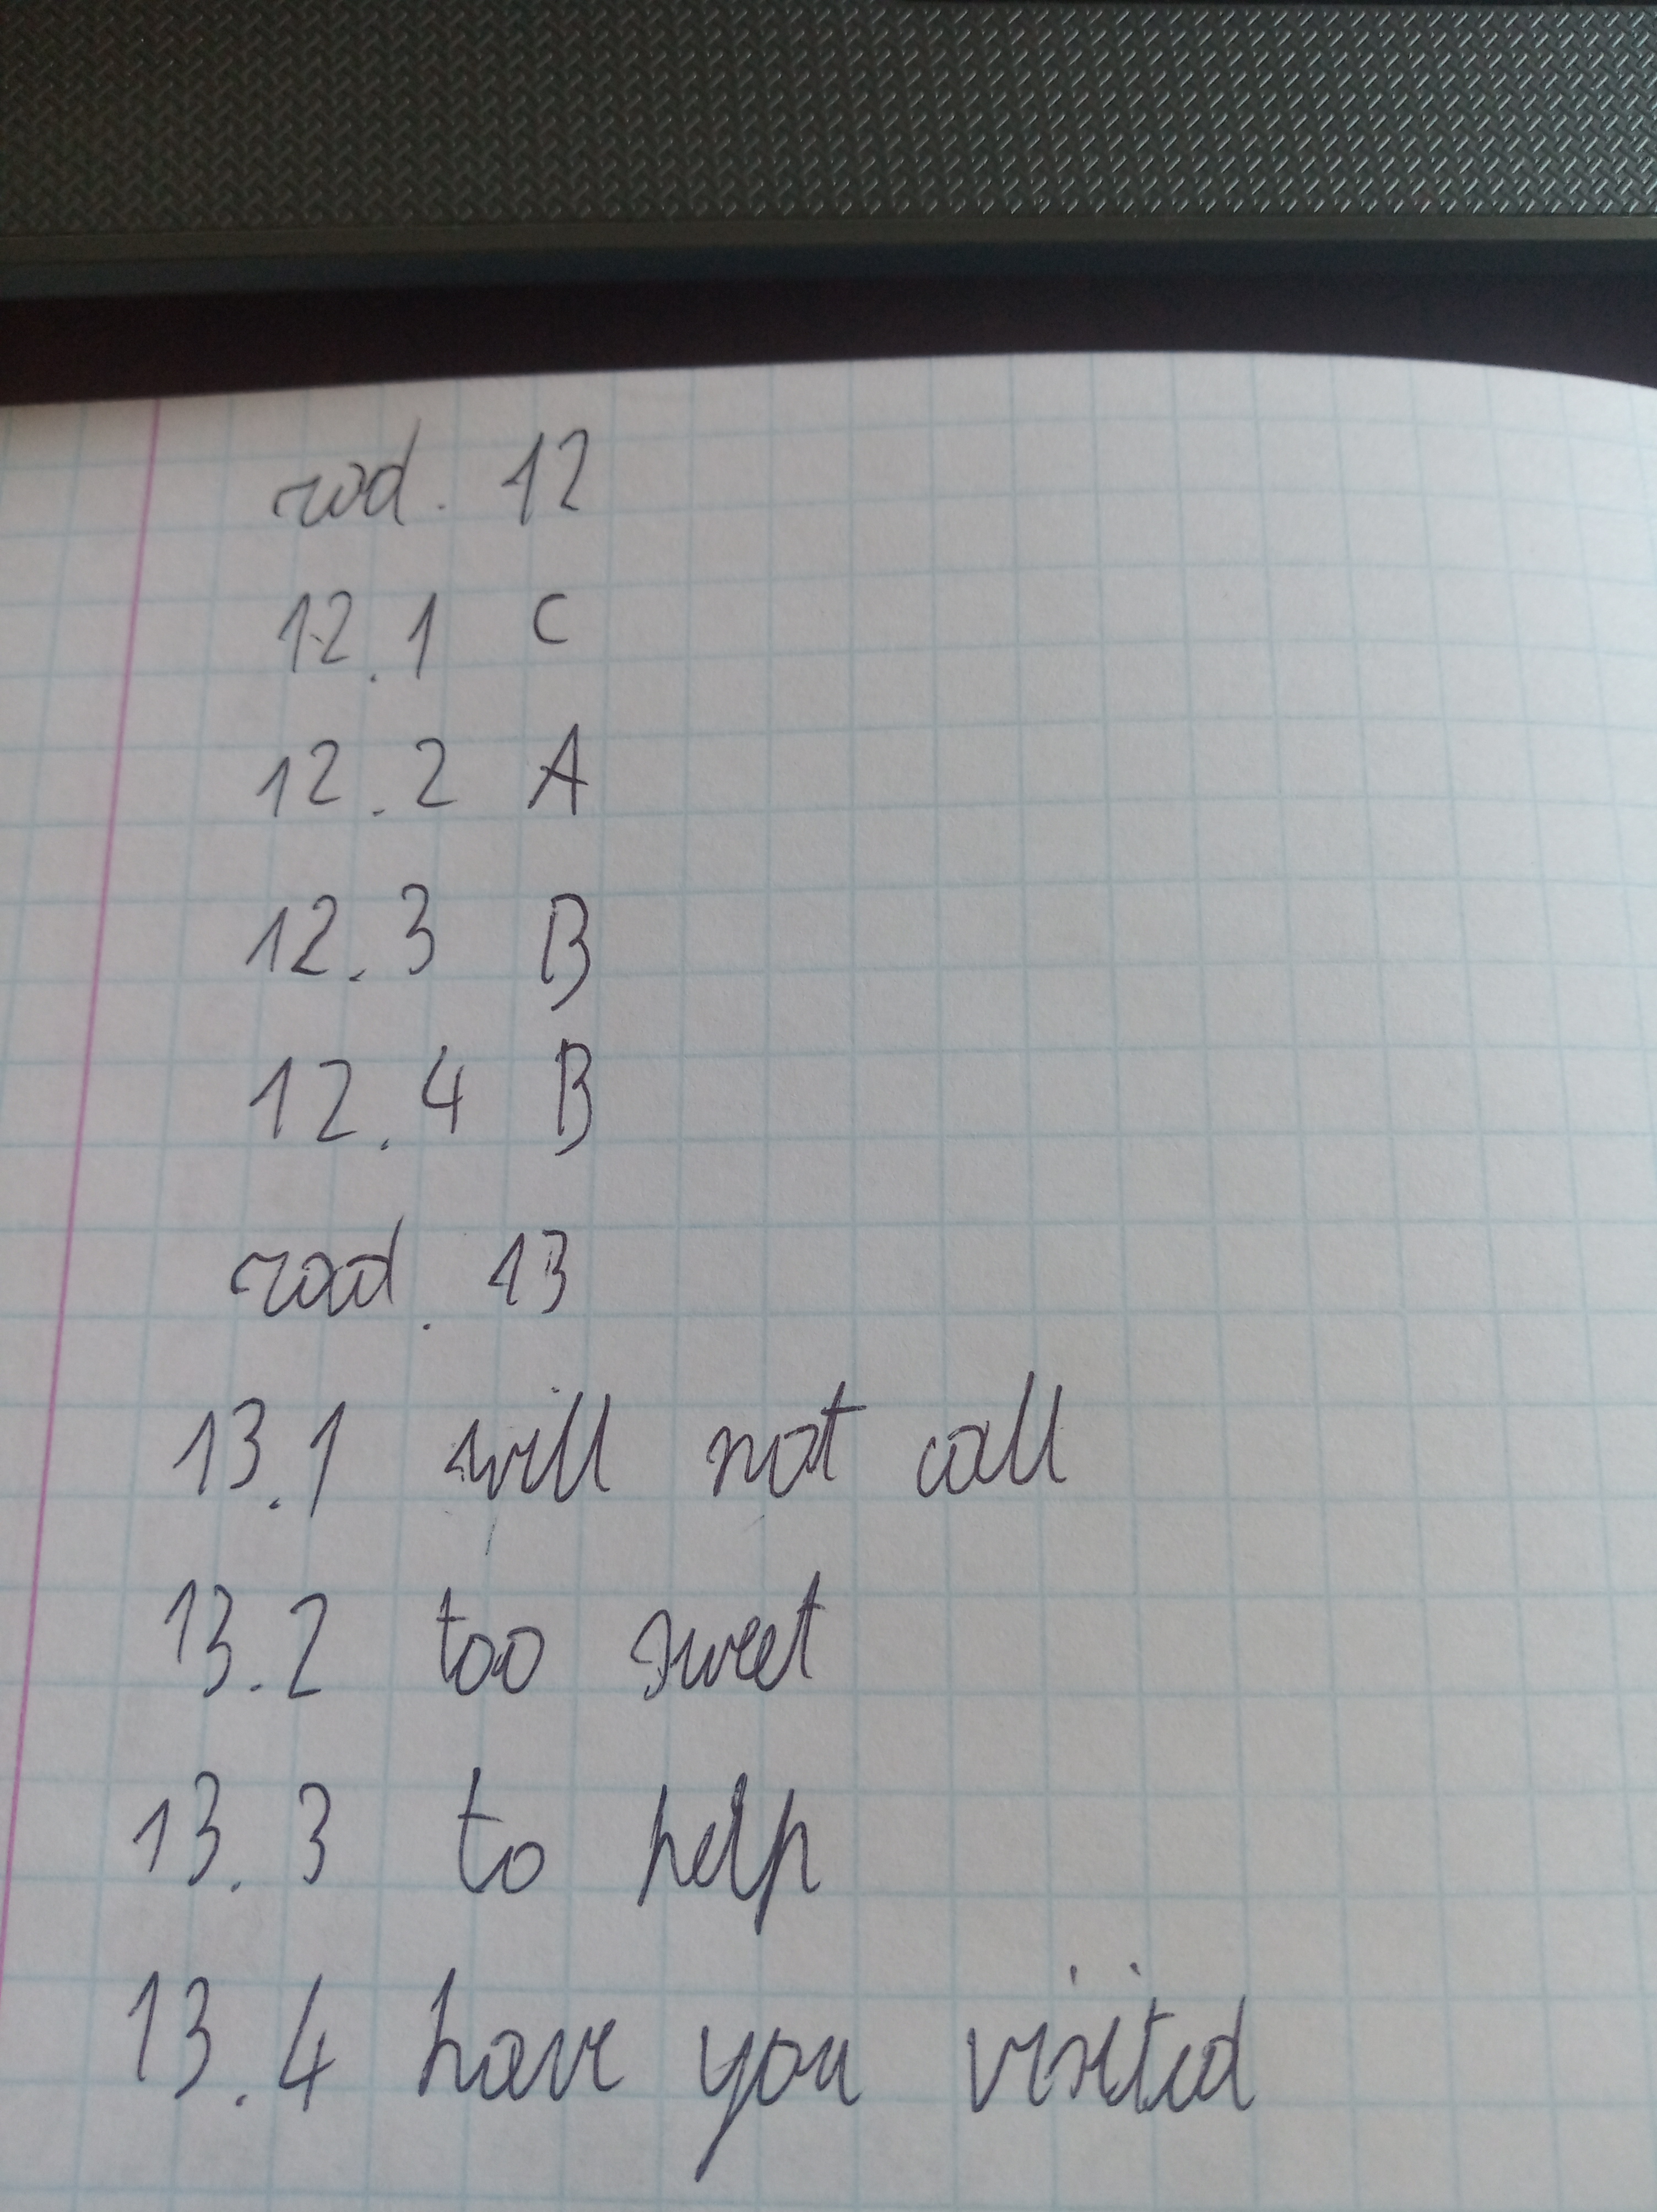 zad. 12
12.1 C
12.2 A
12.3 B
12.4 B
zad. 13
13.1 will not call
13.2 too sweet
13.3 to help
13.4 have you visited